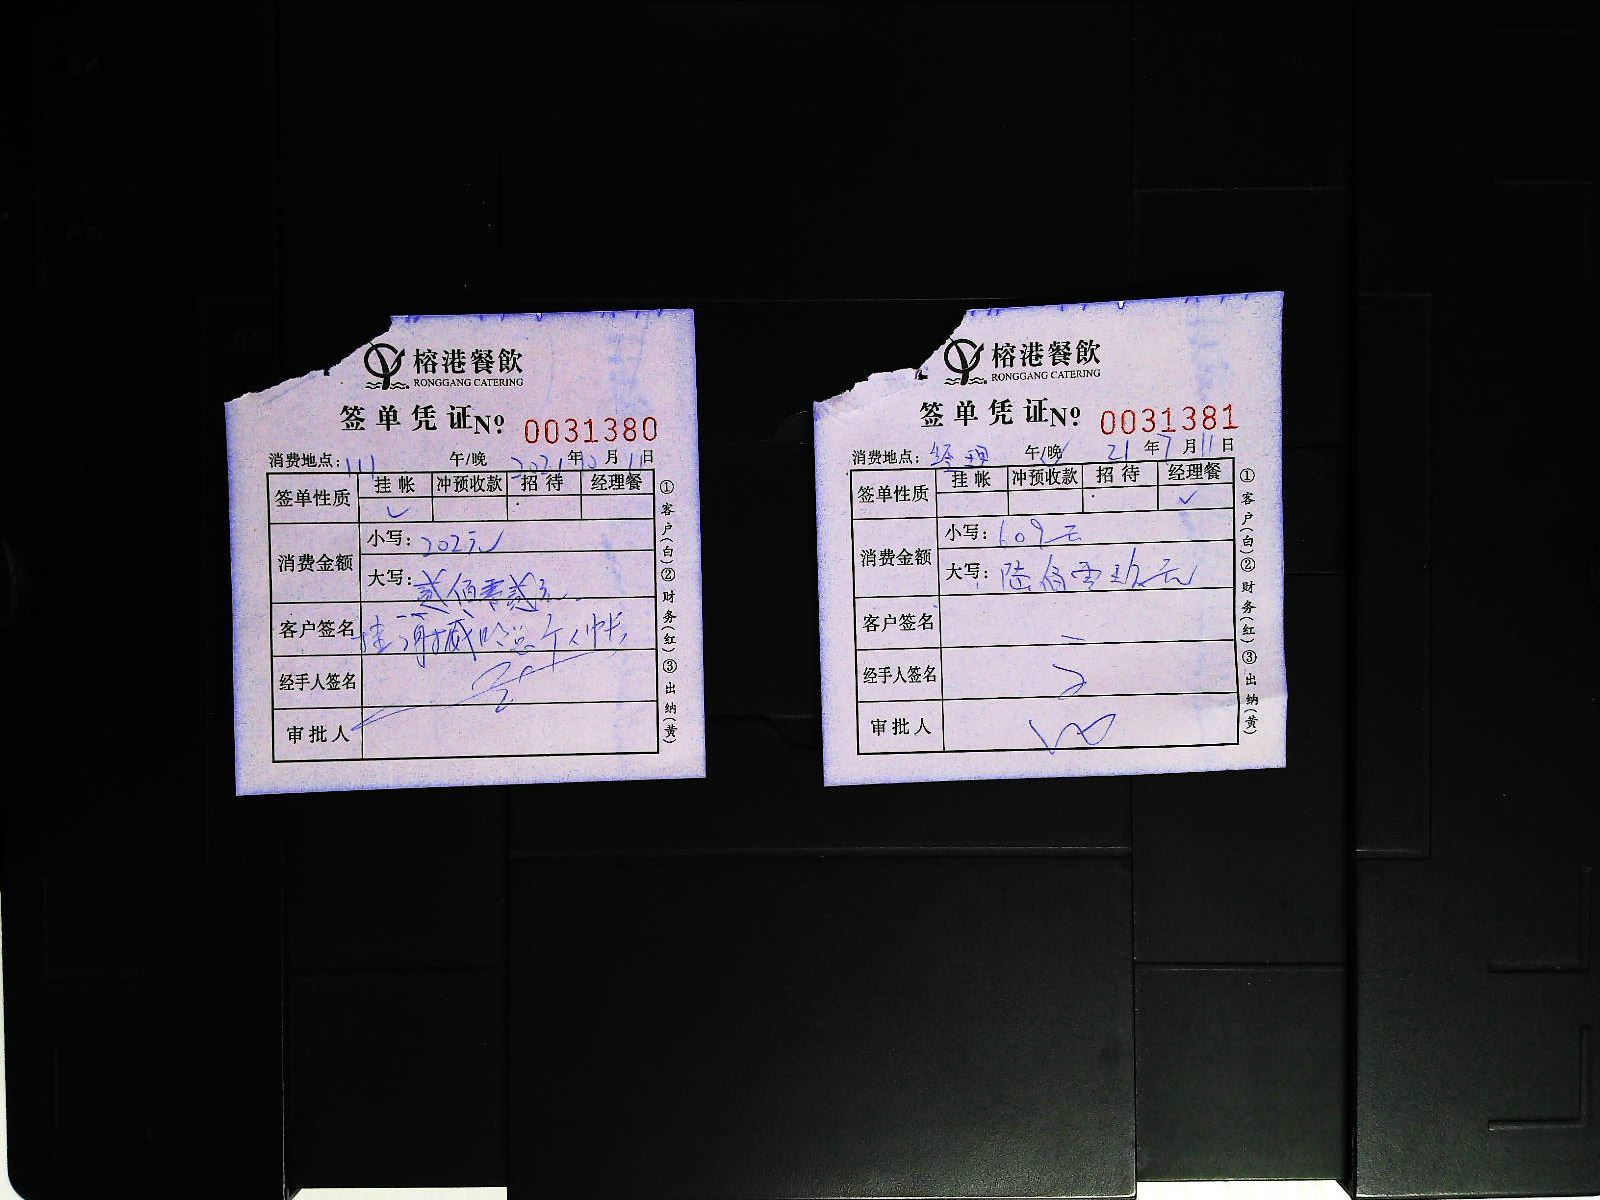 榕港餐飲
RONGGANG CATERING
签单凭证No 0031380
消费地点: 111 午/晚 2021年 月11日
签单性质 挂帐 冲预收款 招待 经理餐
✓
消费金额 小写: 202元
大写: 贰佰零贰元
客户签名 挂 总个人帐
经手人签名
审批人
①客户(白)②财务(红)③出纳(黄)
榕港餐飲
RONGGANG CATERING
签单凭证No 0031381
消费地点: 经理 午/晚 21年7月11日
签单性质 挂帐 冲预收款 招待 经理餐
✓
消费金额 小写: 609元
大写: 陆佰零玖元
客户签名
经手人签名
审批人
①客户(白)②财务(红)③出纳(黄)